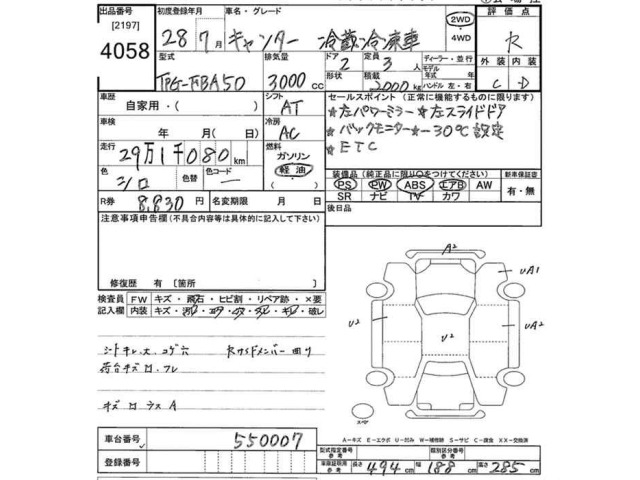 出品番号
[2197]
4058
初度登録年月
28年7月
車名・グレード
キャンター 冷蔵冷凍車
2WD
・
4WD
評価点
R
型式
TPG-FBA50
排気量
3000 cc
ドア
2
形状
定員
3人
積載
2000kg
ディーラー・並行
モデル
年式 年
ハンドル 左・右
外装
C
内装
D
車歴
自家用・( )
シフト
AT
セールスポイント(正常に機能するものに限ります)
☆左パワーミラー ☆左スライドドア
☆バックモニター ☆-30℃設定
☆ETC
車検
年 月
冷房
AC
走行
29万1千080km
燃料
ガソリン
軽油
・( )
色
シロ
色替
色コード
装備品(純正品に限り○をつけてください)
PS PW ABS エアB AW
SR ナビ TV カワ
新車保証書
有・無
R券
8,830円
名変期限 月 日
後日品
注意事項申告欄(不具合内容等は具体的に記入して下さい)
修復歴 有 [箇所 ]
検査員
記入欄
FW キズ・飛石・ヒビ割・リペア跡・×要
内装
シートキレ大、コゲ穴
荷台キズ凹
キズ凹ラスA
A2
UA1
U2
U2
UA2
スペア
A－キズ E－エクボ U－凹み W－補修跡 S－サビ C－腐食 XX－交換済
車台番号
550007
登録番号
型式指定番号
参考
類別区分番号
参考
車庫証明用
参考
長さ 494 cm
幅 188 cm
高さ 285 cm